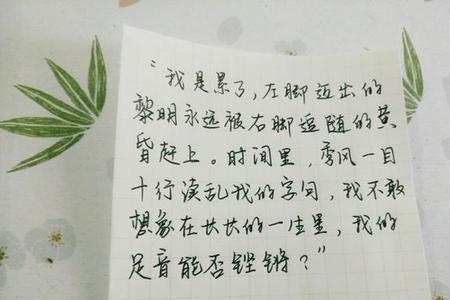 “我是累了，左脚迈出的
黎明永远被右脚追随的黄
昏赶上。时间里，季风一目
十行读乱我的字句，我不敢
想象在长长的一生里，我的
足音能否铿锵？”